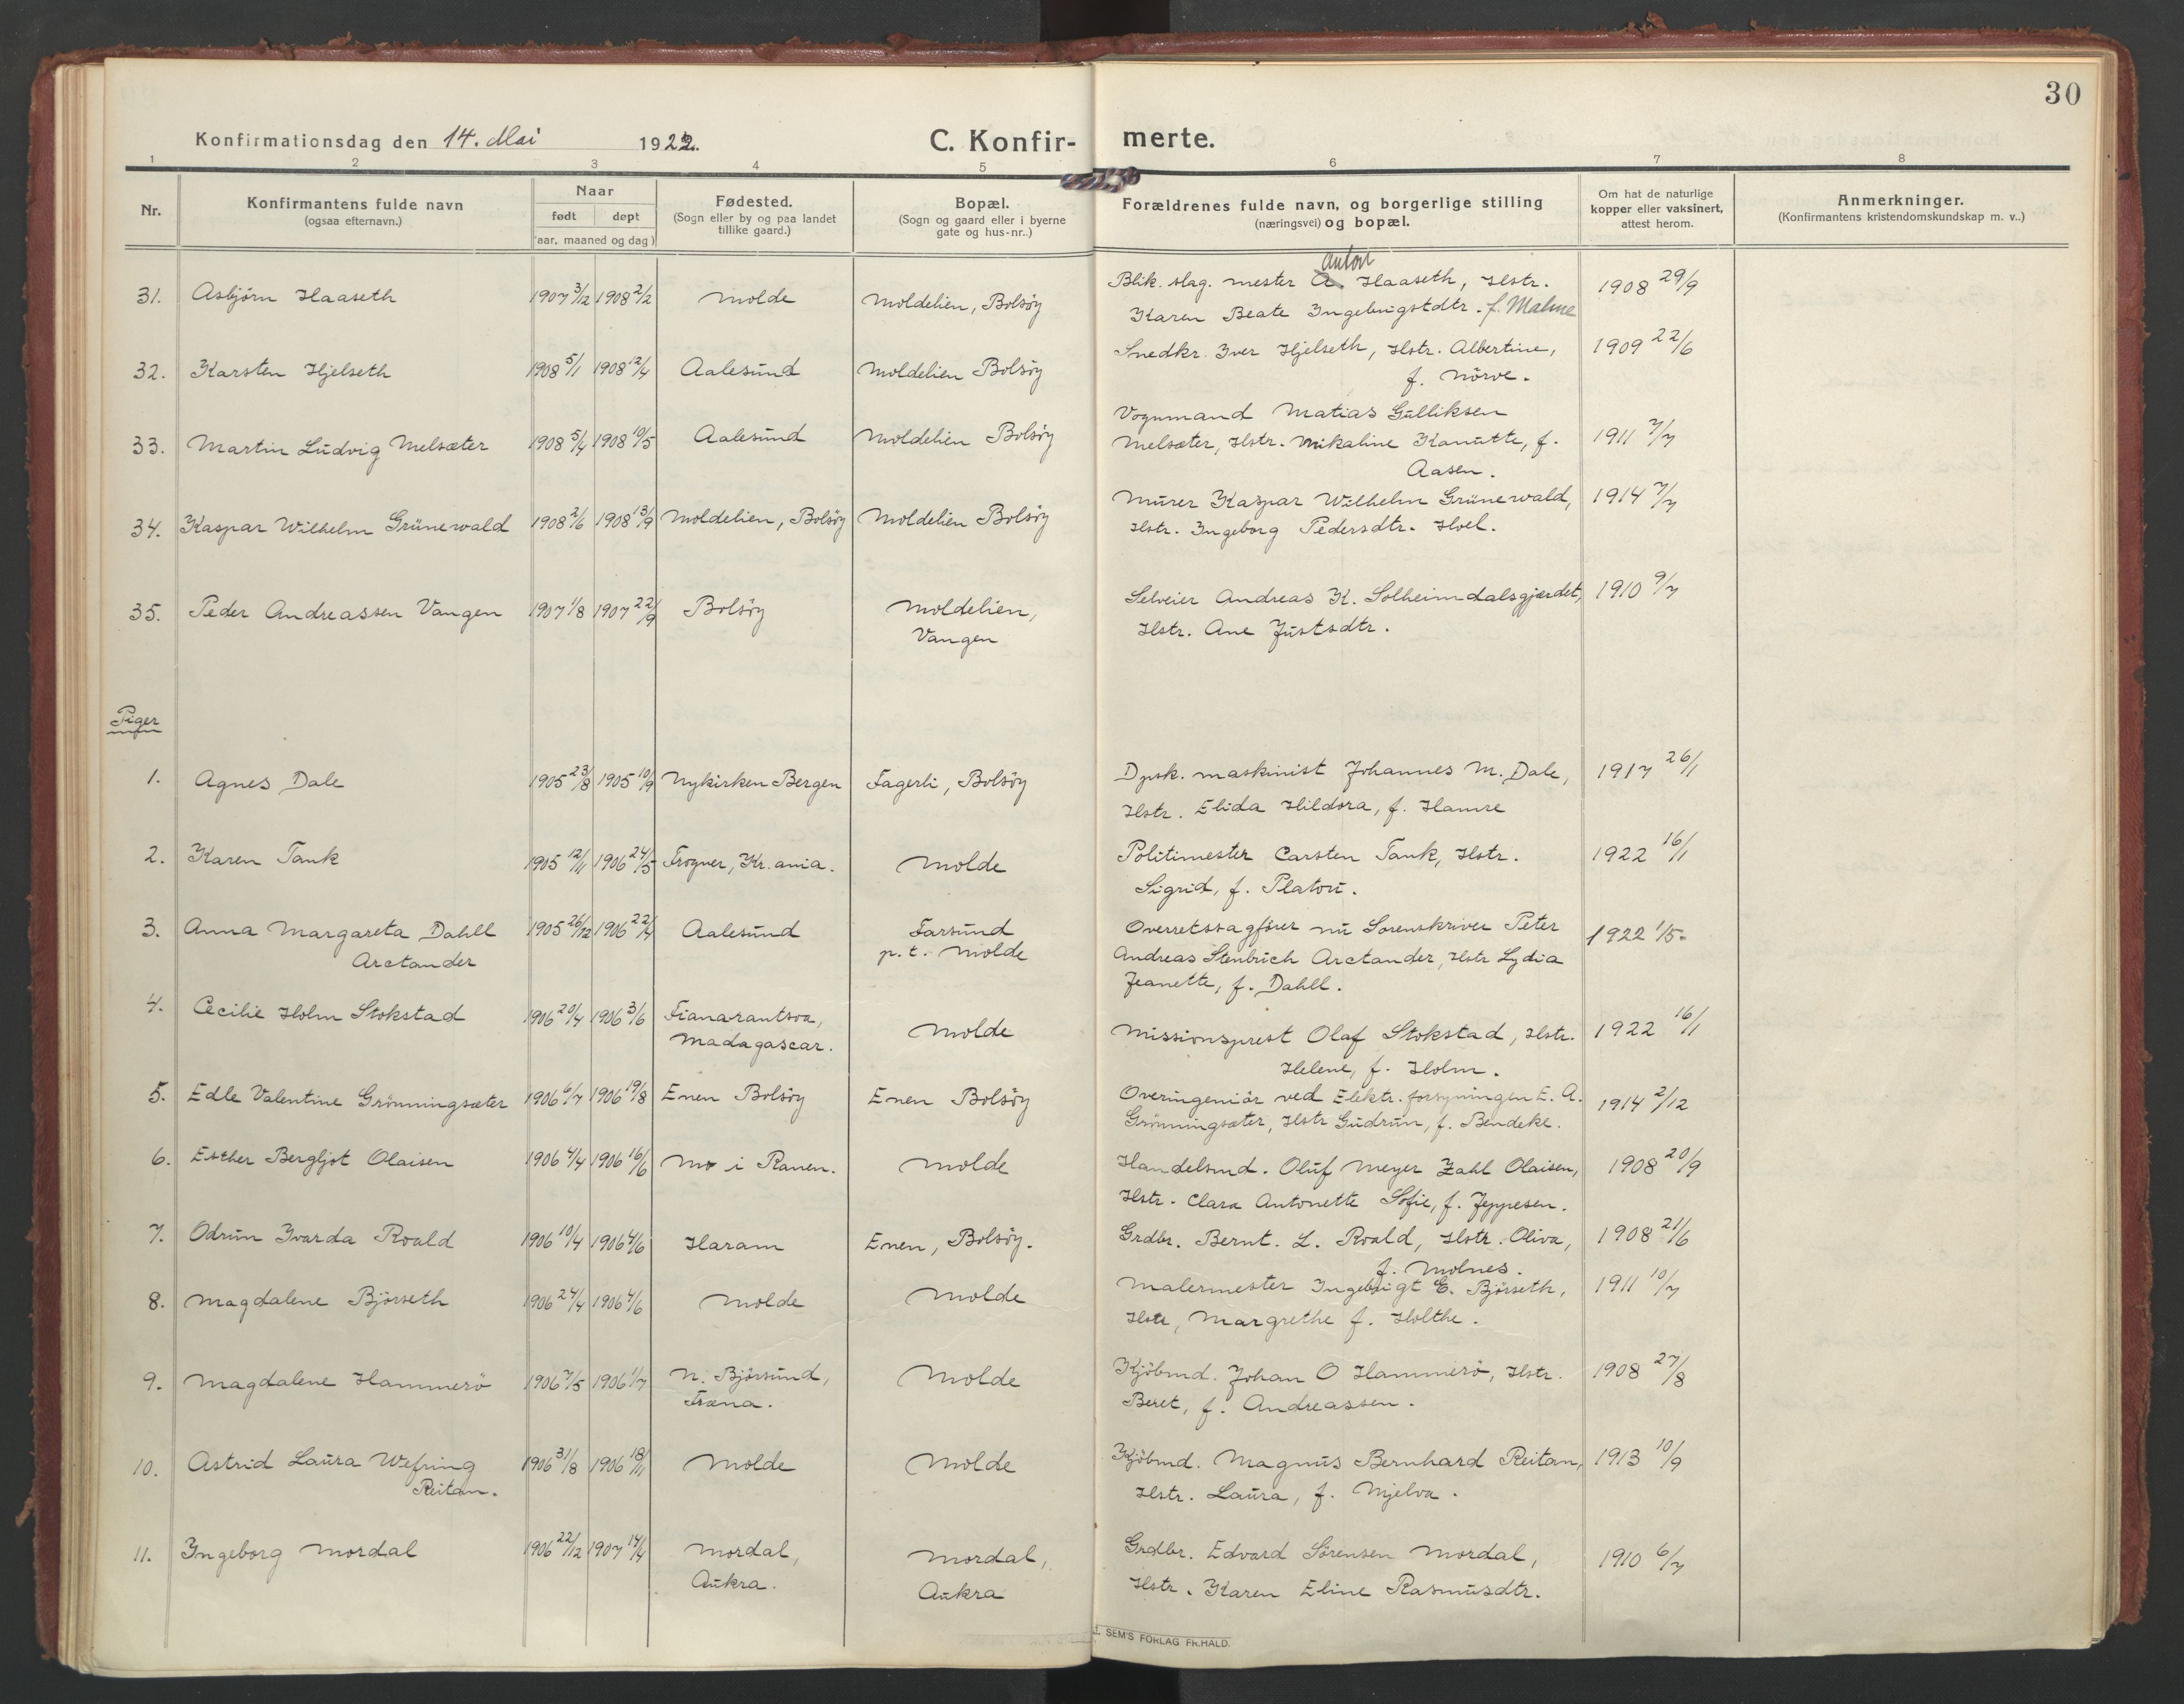 30
Konfirmationsdag den 14. Mai 1922.
C. Konfir- merte.
1 2 3 4 5 6 7 8
Nr.
Konfirmantens fulde navn
(ogsaa efternavn.)
Naar
født døpt
(aar, maaned og dag)
Fødested.
(Sogn eller by og paa landet
tillike gaard.)
Bopæl.
(Sogn og gaard eller i byerne
gate og hus-nr..)
Forældrenes fulde navn, og borgerlige stilling
(næringsvei) og bopæl.
Om hat de naturlige
kopper eller vaksinert,
attest herom.
Anmerkninger.
(Konfirmantens kristendomskundskap m. v..)
Anton
31. Asbjörn Haaseth 1907 3/12 1908 2/2 Molde Moldelien, Bolsöy Blik. slag. mester A. Haaseth, Hstr. 1908 29/9
Karen Beate Ingebrigtsdtr. f. Malme
32. Karsten Hjelseth 1908 5/1 1908 12/4 Aalesund Moldelien Bolsöy Snedkr. Iver Hjelseth, Hstr. Albertine, 1909 22/6
f. Nörve.
Vognmand Matias Gulliksen
33. Martin Ludvig Melsæter 1908 5/4 1908 10/5 Aalesund Moldelien Bolsöy Melsæter, Hstr. Mikaline Kanutte, f. 1911 7/7
Aasen.
34. Kaspar Wilhelm Grünewald 1908 2/6 1908 13/9 Moldelien, Bolsöy Moldelien Bolsöy Murer Kaspar Wilhelm Grünewald, 1914 7/7
Hstr. Ingeborg Pedersdtr. Hoel.
35. Peder Andreassen Vangen 1907 1/8 1907 22/9 Bolsöy Moldelien, Selveier Andreas K. Solheimdalsgjærdet, 1910 9/7
Vangen Hstr. Ane Justsdtr.
Piger
1. Agnes Dale 1905 23/8 1905 10/9 Nykirken Bergen Fagerli, Bolsöy Dpsk. maskinist Johannes M. Dale, 1917 26/1
Hstr. Elida Hildora, f. Hamre
2. Karen Tank 1905 12/11 1906 24/5 Frogner, Kr.ania. Molde Politimester Carsten Tank, Hstr. 1922 16/1
Sigrid, f. Platou.
3. Anna Margareta Dahll 1905 26/12 1906 22/4 Aalesund Farsund Overretssagfører nu Sorenskriver Peter 1922 1/5.
Arctander p.t. Molde Andreas Stenbuch Arctander, Hstr Lydia
Jeanette, f. Dahll.
4. Cecilie Holm Stokstad 1906 20/4 1906 3/6 Fianarantsoa, Molde Missionsprest Olaf Stokstad, Hstr. 1922 16/1
Madagascar. Helene, f. Holm.
5. Edle Valentine Grönningsæter 1906 6/7 1906 19/8 Enen Bolsöy Enen Bolsöy Overingeniör ved Elektr. forsyningen E. A. 1914 2/12
Grönningsæter, Hstr Gudrun, f. Bendeke.
6. Esther Bergljot Olaisen 1906 4/4 1906 16/6 Mo i Ranen. Molde Handelsmd. Oluf Meyer Zahl Olaisen, 1908 20/9
Hstr. Clara Antonette Sofie, f. Jeppesen.
7. Odrun Ivarda Roald 1906 10/4 1906 4/6 Haram Enen, Bolsöy. Grdbr. Bernt. L. Roald, Hstr. Oliva, 1908 21/6
f. Molnes.
8. Magdalene Björseth 1906 24/4 1906 4/6 Molde Molde Malermester Ingebrigt E. Björseth, 1911 10/7
Hstr, Margrethe f. Holthe.
9. Magdalene Hammerö 1906 7/5 1906 1/7 N. Björsund, Molde Kjöbmd. Johan O Hammerö, Hstr. 1908 27/8
Fræna. Beret, f. Andreassen.
10. Astrid Laura Wefring 1906 31/8 1906 18/11 Molde Molde Kjöbmd. Magnus Bernhard Reitan, 1913 10/9
Reitan. Hstr. Laura, f. Mjelva.
11. Ingeborg Mordal 1906 22/12 1907 14/4 Mordal, Mordal, Grdbr. Edvard Sørensen Mordal, 1910 6/7
Aukra. Aukra Hstr. Karen Eline Rasmusdtr.
SEM'S FORLAG FR.HALD.